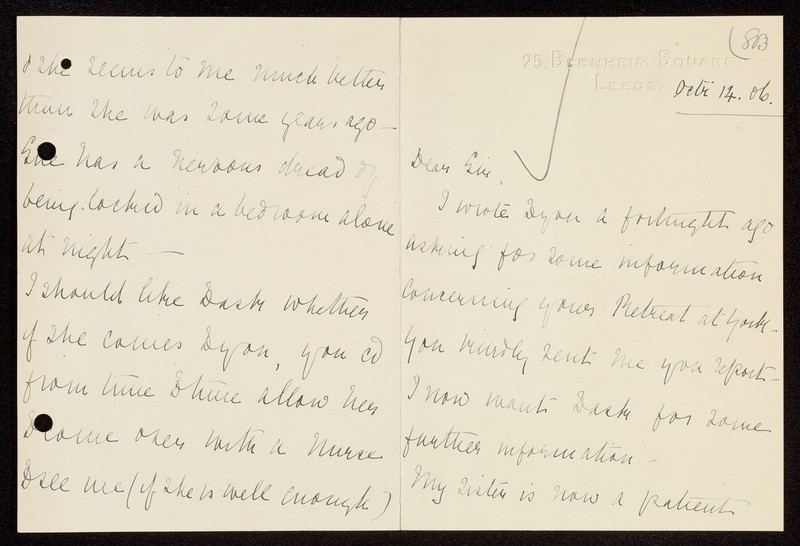 803
25, BLENHEIM SQUARE,
LEEDS.
Octr 14. 06.
Dear Sir,
I wrote to you a fortnight ago
asking for some information
concerning your Retreat at York -
You kindly sent me your report -
I now want to ask for some
further information -
My sister is now a patient
& she seems to me much better
than she was some years ago -
She has a nervous dread of
being locked in a bedroom alone
at night -
I should like to ask whether
if she comes to you, you cd
from time to time allow her
to come over with a nurse
to see me (if she is well enough)